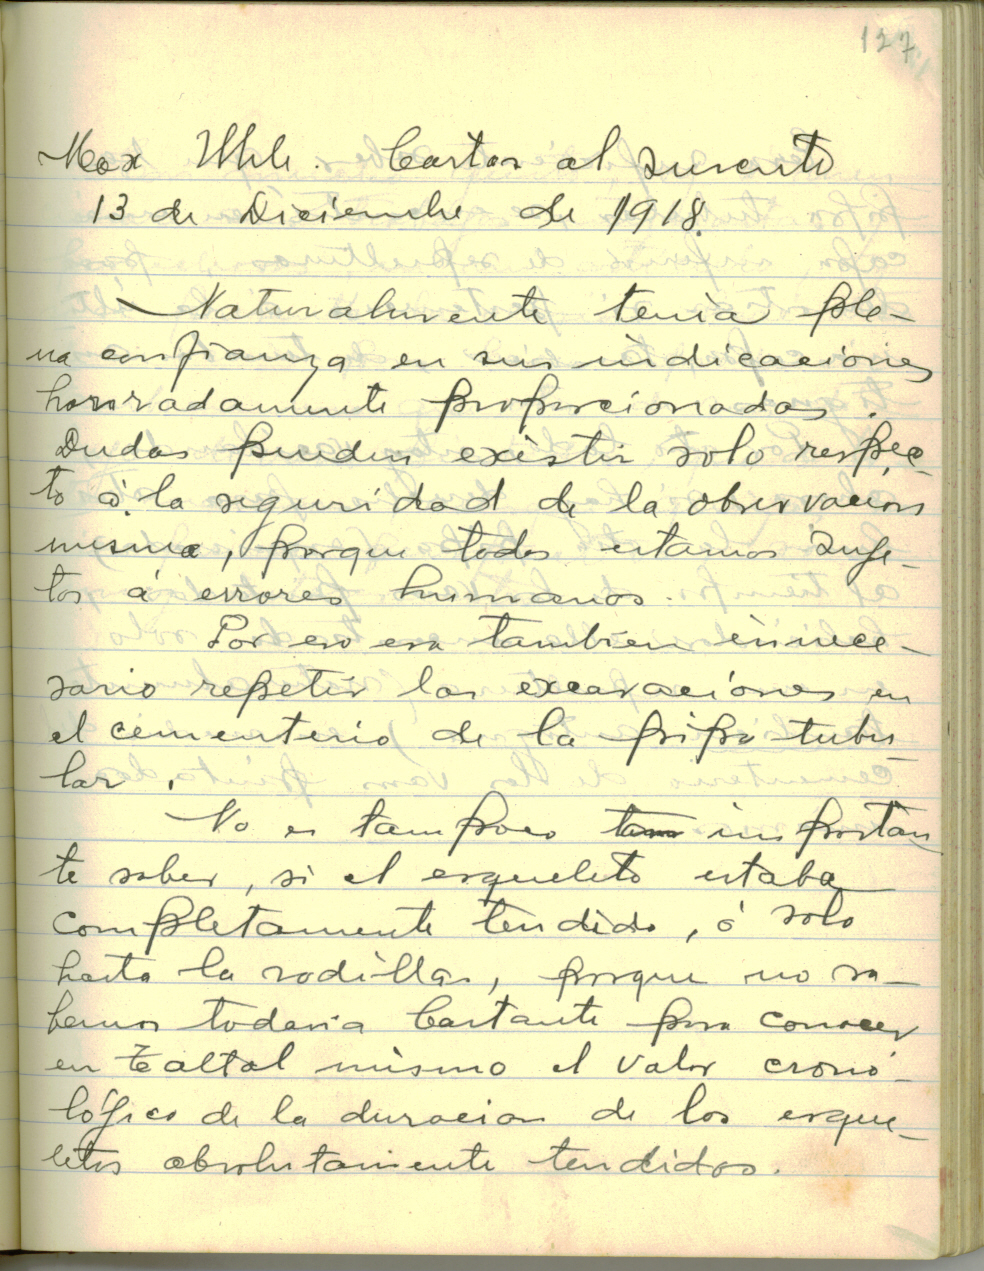 127
Max Uhle. Cartas al suscrito
13 de Diciembre de 1918.
Naturalmente tenia ple-
na confianza en sus indicaciones
honradamente proporcionadas.
Dudas pueden existir solo respec-
to á la seguridad de la observacion
misma, porque todos estamos suje-
tos á errores humanos.
Por eso era tambien innece-
sario repetir las excavaciones en
el cementerio de la pipa tubu
lar.
No es tampoco importan
te saber, si el esqueleto estaba
completamente tendido, ó solo
hasta la rodillas, porque no sa-
bemos todavia bastante para conocer
en Taltal mismo el valor crono-
lógico de la duracion de los esque-
letos absolutamente tendidos.